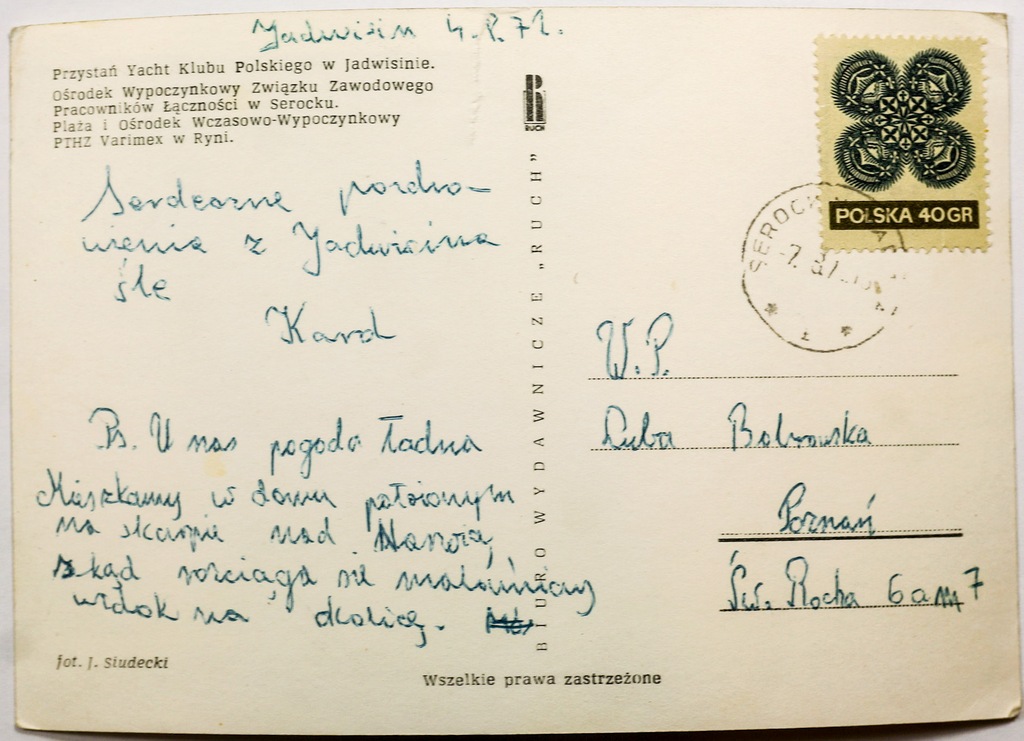 Jadwisin 4.8.72.
Przystań Yacht Klubu Polskiego w Jadwisinie.
Ośrodek Wypoczynkowy Związku Zawodowego
Pracowników Łączności w Serocku.
Plaża i Ośrodek Wczasowo-Wypoczynkowy
PTHZ Varimex w Ryni.
Serdeczne pozdro-
wienia z Jadwisina
śle
Karol
Ps. U nas pogoda ładna
Mieszkamy w domu położonym
na skarpie nad Narwią,
skąd rozciąga się malowniczy
widok na okolicę.
fot. J. Siudecki
RUCH
BIURO WYDAWNICZE „RUCH”
Wszelkie prawa zastrzeżone
POLSKA 40GR
SEROCK
W.P.
Luba Bobrowska
Poznań
Św. Rocha 6a m 7